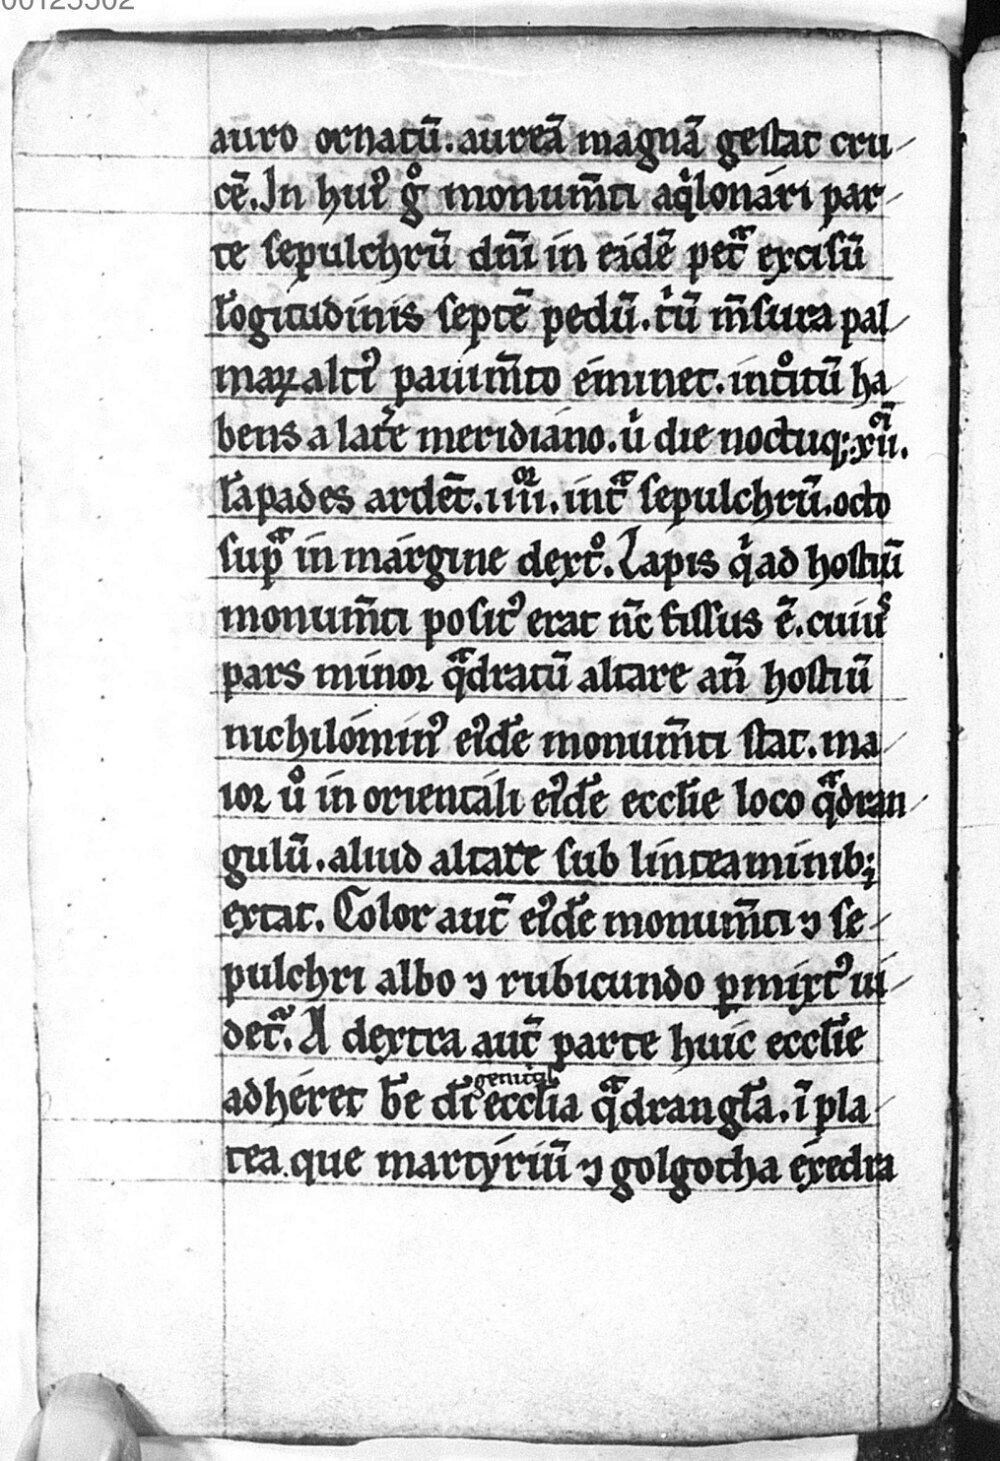 00125502
auro ornatū. aureā magnā gestat cru
cē. In huiꝰ gͦ monum̄ti aqͥlonari par
te sepulchrū dn̄i in eidē petᷓ excisū
l̄ogitudinis septē pedū. tͥū m̄sura pal
maꝝ altiꝰ pauim̄to eminet. intͦitū ha
bens a lat̄e meridiano. uͥ die noctuqꝫ xii.
l̄apades ardēt. iiii. intᷓ sepulchrū. octo
supᷓ in margine dextͦ. Lapis qͥ ad hostiū
monum̄ti positꝰ erat nc̄ fissus ē. cuiuˢ
pars minor qᷓdratū altare an̄ hostiū
nichilominꝰ eiꝰdē monum̄ti stat. ma
ior uͦ in orientali eiꝰdē eccl̄ie loco qᷓdran
gulū. aliud altare sub linteaminibꝫ
extat. Color aut̄ eiꝰdē monum̄ti ⁊ se
pulchri albo ⁊ rubicundo ꝑmixtꝰ ui
detᷓ. A dextra aut̄ parte huic eccl̄ie
adheret b̄e dī genitͥ eccl̄ia qᷓdrangl̄a. ī pla
tea que martyriū ⁊ golgotha exedra